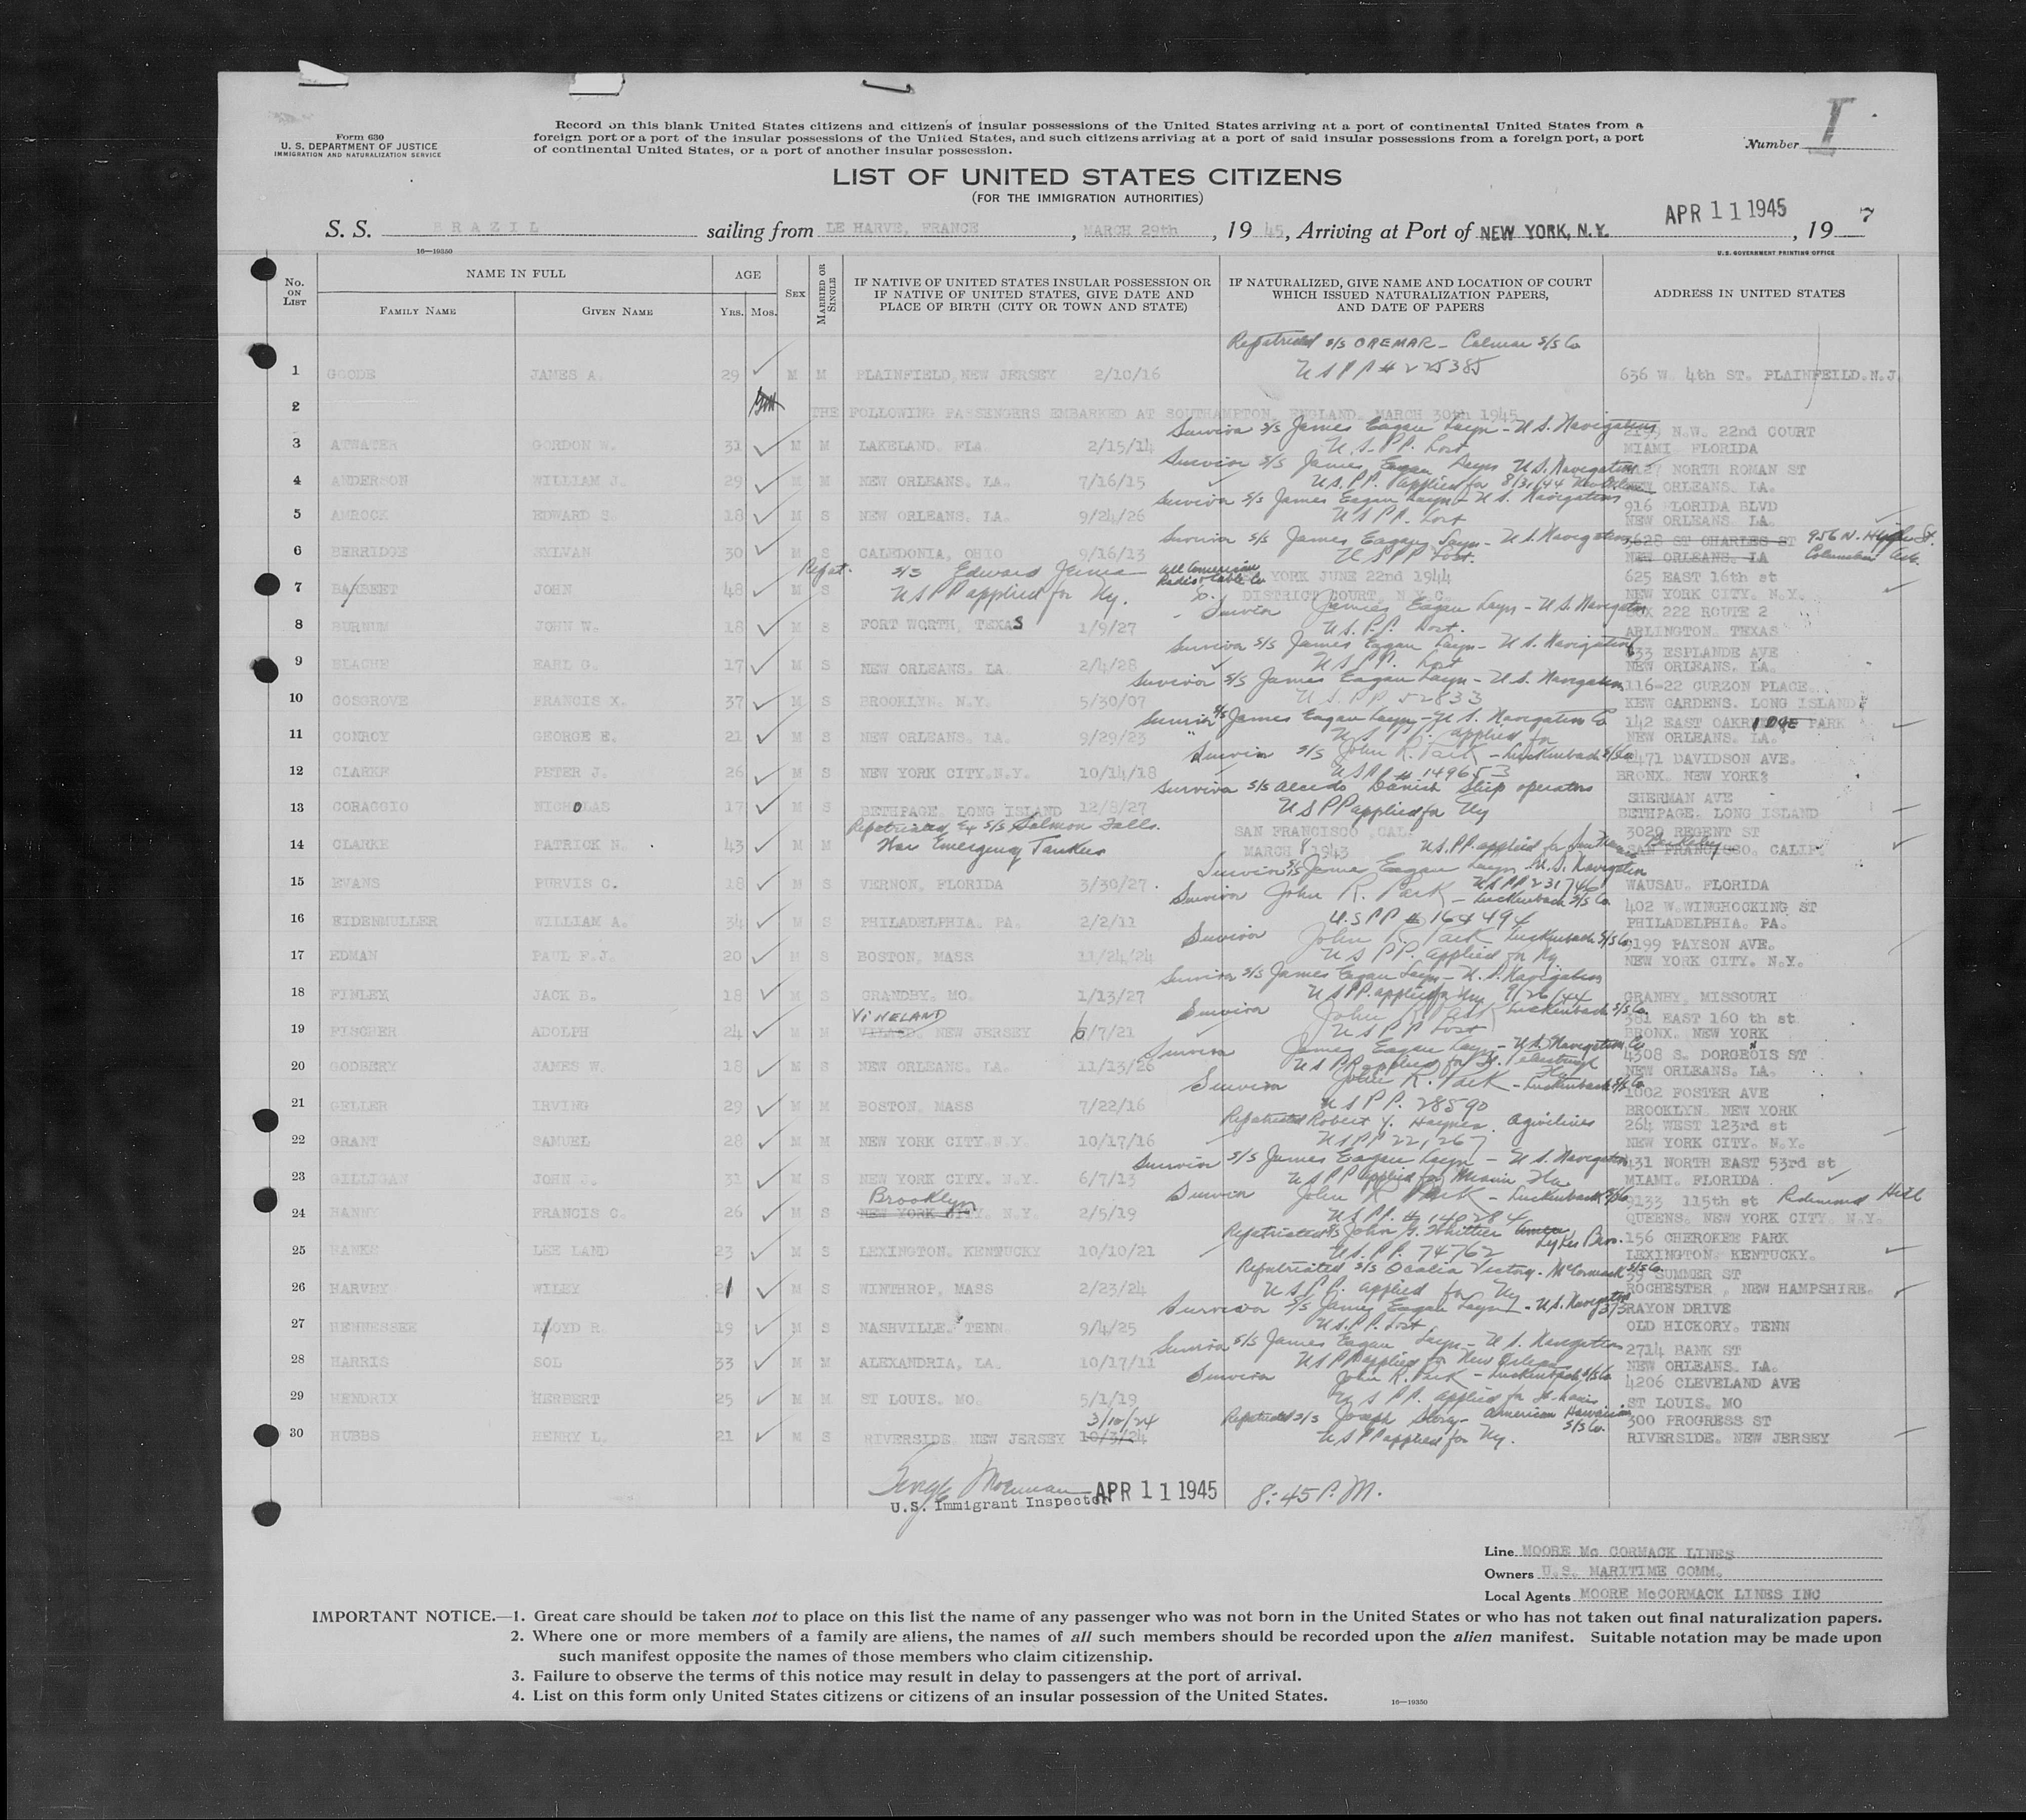 Form 630
U. S. DEPARTMENT OF JUSTICE
IMMIGRATION AND NATURALIZATION SERVICE
Record on this blank United States citizens and citizens of insular possessions of the United States arriving at a port of continental United States from a
foreign port or a port of the insular possessions of the United States, and such citizens arriving at a port of said insular possessions from a foreign port, a port
of continental United States, or a port of another insular possession.
Number I
LIST OF UNITED STATES CITIZENS
(FOR THE IMMIGRATION AUTHORITIES)
S. S. BRAZIL sailing from LE HARVE, FRANCE, MARCH 29th, 19 45, Arriving at Port of NEW YORK, N.Y. APR 11 1945, 19 7
16—19350
U. S. GOVERNMENT PRINTING OFFICE
No. ON LIST
NAME IN FULL
FAMILY NAME
GIVEN NAME
AGE
YRS. MOS.
SEX
MARRIED OR SINGLE
IF NATIVE OF UNITED STATES INSULAR POSSESSION OR
IF NATIVE OF UNITED STATES, GIVE DATE AND
PLACE OF BIRTH (CITY OR TOWN AND STATE)
IF NATURALIZED, GIVE NAME AND LOCATION OF COURT
WHICH ISSUED NATURALIZATION PAPERS,
AND DATE OF PAPERS
ADDRESS IN UNITED STATES
Repatriated S/S OREMAR - Calmar S/S Co
1 GOODE JAMES A. 29 M M PLAINFIELD, NEW JERSEY 2/10/16 USPP # 225385 636 W. 4th ST. PLAINFEILD. N.J.
2 THE FOLLOWING PASSENGERS EMBARKED AT SOUTHAMPTON, ENGLAND, MARCH 30th 1945
Survivor S/S James Eagan Layn - U.S. Navigation N.W. 22nd COURT
3 ATWATER GORDON W. 31 M M LAKELAND, FLA 2/15/14 U.S.PP. Lost MIAMI FLORIDA
Survivor S/S James Eagan Layn U.S. Navigation NORTH ROMAN ST
4 ANDERSON WILLIAM J. 29 M M NEW ORLEANS, LA. 7/16/15 U.S.PP. applied for 8/31/44 NEW ORLEANS, LA.
Survivor S/S James Eagan Layn - U.S. Navigation 916 FLORIDA BLVD
5 AMROCK EDWARD S. 18 M S NEW ORLEANS, LA. 9/24/26 USPP. Lost NEW ORLEANS LA.
Survivor S/S James Eagan Layn - U.S. Navigation 3628 ST CHARLES ST 956 N. High St.
6 BERRIDGE SYLVAN 30 M S CALEDONIA, OHIO 9/16/13 USPP Lost. NEW ORLEANS, LA Columbus
Repat. S/S Edward Jenna All American Radio & Cable Co YORK JUNE 22nd 1944 625 EAST 16th st
7 BARBEET JOHN 48 M S USPP applied for Ny. DISTRICT COURT, N.Y.C. NEW YORK CITY, N.Y.
Survivor James Eagan Layn - U.S. Navigation BOX 222 ROUTE 2
8 BURNUM JOHN W. 18 M S FORT WORTH, TEXAS 1/9/27 U.S.P.P. Lost. ARLINGTON, TEXAS
Survivor S/S James Eagan Layn - U S Navigation 533 ESPLANDE AVE
9 BLACHE EARL G. 17 M S NEW ORLEANS, LA. 2/4/28 USPP. Lost NEW ORLEANS, LA.
Survivor S/S James Eagan Layn - U.S. Navigation 116-22 CURZON PLACE
10 COSGROVE FRANCIS X. 37 M S BROOKLYN, N.Y. 5/30/07 USPP 52833 KEW GARDENS, LONG ISLAND
Survivor S/S James Eagan Layn - U.S. Navigation Co 142 EAST OAKRIDGE PARK
11 CONROY GEORGE E. 21 M S NEW ORLEANS, LA. 9/29/23 U S PP. applied for NEW ORLEANS, LA.
Survivor S/S John R. Park - Luckenbach S/S Co 2471 DAVIDSON AVE.
12 CLARKE PETER J. 26 M S NEW YORK CITY, N.Y. 10/14/18 USPP # 149653 BRONX. NEW YORK
Survivor S/S Alcedo Danish Ship operators SHERMAN AVE
13 CORAGGIO NICHOLAS 17 M S BETHPAGE, LONG ISLAND 12/8/27 USPP applied for Ny BETHPAGE, LONG ISLAND
Repatriated Ex S/S Salmon Falls. SAN FRANCISCO, CAL. 3029 REGENT ST
14 CLARKE PATRICK N. 43 M M War Emergency Tankers MARCH 8 1943 U.S.PP. applied for San Fran Berkeley SAN FRANCISCO, CALIF.
Survivor S/S James Eagan Layn - U.S. Navigation
15 EVANS PURVIS C. 18 M S VERNON, FLORIDA 3/30/27 USPP 231746 WAUSAU, FLORIDA
Survivor John R. Park - Luckenbach S/S Co 402 W. WINGHOCKING ST
16 EIDENMULLER WILLIAM A. 34 M S PHILADELPHIA, PA. 2/2/11 U.S PP # 164494 PHILADELPHIA, PA.
Survivor John R Park Luckenbach S/S Co 9199 PAYSON AVE.
17 EDMAN PAUL F.J. 20 M S BOSTON, MASS 11/24/24 U S PP. applied for Ny. NEW YORK CITY, N.Y.
Survivor S/S James Eagan Layn - U.S. Navigation
18 FINLEY JACK B. 18 M S GRANDBY, MO. 1/13/27 USPP. applied for 9/26/44 GRANBY, MISSOURI
VINELAND Survivor John R Park Luckenbach S/S Co 381 EAST 160 th st
19 FISCHER ADOLPH 24 M M NEW JERSEY 6/7/21 USPP Lost BRONX, NEW YORK
Survivor James Eagan Layn - U.S. Navigation Co 4308 S. DORGENOIS ST
20 GODBERY JAMES W. 18 M S NEW ORLEANS, LA. 11/13/26 USPP applied for St. Petersburgh Fla NEW ORLEANS, LA.
Survivor John R. Park - Luckenbach S/S Co 1602 FOSTER AVE
21 GELLER IRVING 29 M M BOSTON, MASS 7/22/16 USPP. 28590 BROOKLYN, NEW YORK
Repatriated Robert Y. Haynes. Agwilines 264 WEST 123rd st
22 GRANT SAMUEL 28 M M NEW YORK CITY, N.Y. 10/17/16 USPP 221267 NEW YORK CITY, N.Y.
Survivor S/S James Eagan Layn - U.S. Navigation 431 NORTH EAST 53rd st
23 GILLIGAN JOHN J. 31 M S NEW YORK CITY, N.Y. 6/7/13 USPP applied for Miami Fla MIAMI, FLORIDA
Brooklyn Survivor John R Park - Luckenbach S/S Co 9133 115th st Richmond Hill
24 HANNY FRANCIS C. 26 M S NEW YORK CITY, N.Y. 2/5/19 USPP. # 140284 QUEENS, NEW YORK CITY, N.Y.
Repatriated S/S John G. Whittier Lykes Bros. 156 CHEROKEE PARK
25 HANKS LEE LAND 23 M S LEXINGTON, KENTUCKY 10/10/21 U.S.PP. 74762 LEXINGTON, KENTUCKY.
Repatriated S/S Ocalia Victory - McCormack S/S Co. 59 SUMMER ST
26 HARVEY WILEY 21 M S WINTHROP, MASS 2/23/24 USPP. applied for Ny ROCHESTER, NEW HAMPSHIRE.
Survivor S/S James Eagan Layn - U.S. Navigation 373 RAYON DRIVE
27 HENNESSEE LLOYD R. 19 M S NASHVILLE, TENN 9/4/25 U.S.P.P. Lost OLD HICKORY, TENN
Survivor S/S James Eagan Layn - U S Navigation 2714 BANK ST
28 HARRIS SOL 33 M M ALEXANDRIA, LA. 10/17/11 USPP applied for New Orleans NEW ORLEANS, LA.
Survivor John R. Park - Luckenbach S/S Co 4206 CLEVELAND AVE
29 HENDRIX HERBERT 25 M M ST LOUIS, MO. 5/1/19 U S PP. applied for St. Louis ST LOUIS, MO
3/10/24 Repatriated S/S Joseph Story - American Hawaiian S/S Co. 300 PROGRESS ST
30 HUBBS HENRY L. 21 M S RIVERSIDE, NEW JERSEY 10/3/24 USPP applied for Ny. RIVERSIDE, NEW JERSEY
APR 11 1945 8:45 P.M.
U.S. Immigrant Inspector
Line MOORE Mc CORMACK LINES
Owners U.S. MARITIME COMM.
Local Agents MOORE McCORMACK LINES INC
IMPORTANT NOTICE.—1. Great care should be taken not to place on this list the name of any passenger who was not born in the United States or who has not taken out final naturalization papers.
2. Where one or more members of a family are aliens, the names of all such members should be recorded upon the alien manifest. Suitable notation may be made upon
such manifest opposite the names of those members who claim citizenship.
3. Failure to observe the terms of this notice may result in delay to passengers at the port of arrival.
4. List on this form only United States citizens or citizens of an insular possession of the United States.
16—19350